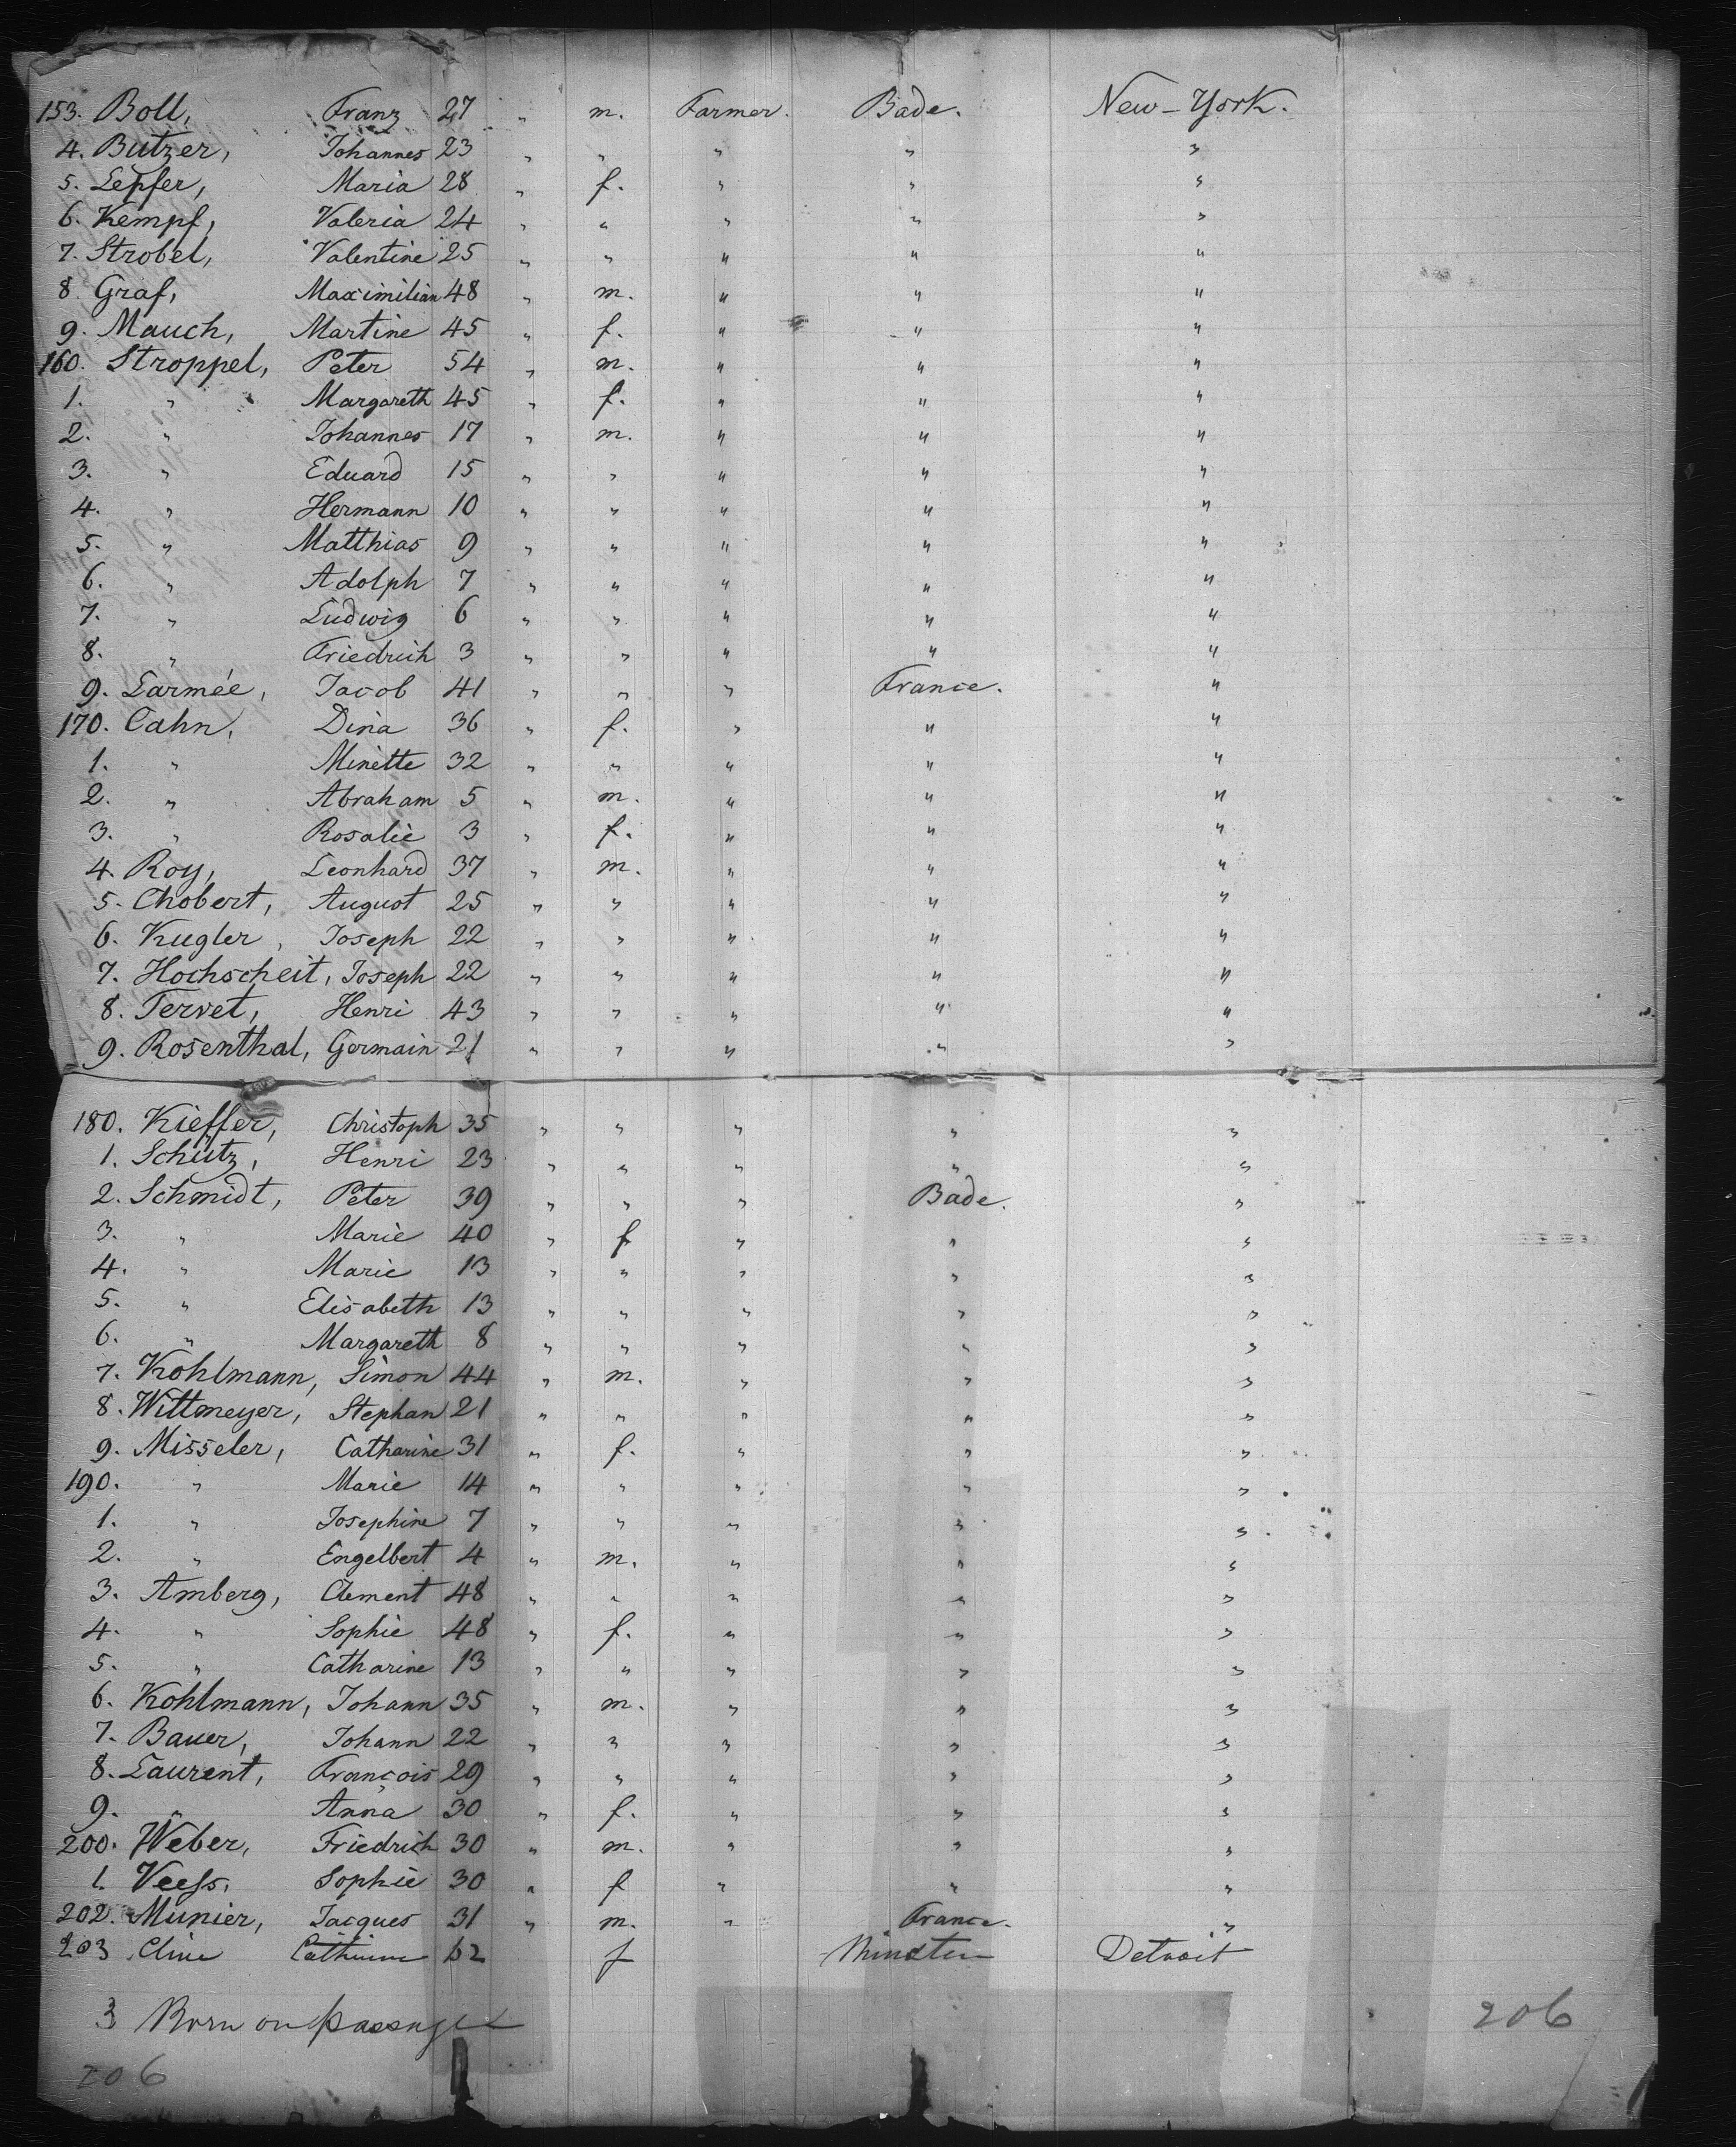 153. Boll, Franz 27 " m. Farmer. Bade. New-York.
4. Butzer, Johannes 23 " " " " "
5. Lepfer, Maria 28 " f. " " "
6. Kempf, Valeria 24 " " " " "
7. Strobel, Valentine 25 " " " " "
8. Graf, Maximilian 48 " m. " " "
9. Mauch, Martine 45 " f. " " "
160. Stroppel, Peter 54 " m. " " "
1. " Margareth 45 " f. " " "
2. " Johannes 17 " m. " " "
3. " Eduard 15 " " " " "
4. " Hermann 10 " " " " "
5. " Matthias 9 " " " " "
6. " Adolph 7 " " " " "
7. " Ludwig 6 " " " " "
8. " Friedrich 3 " " " " "
9. Larmée, Jacob 41 " " " France. "
170. Cahn, Dina 36 " f. " " "
1. " Minette 32 " " " " "
2. " Abraham 5 " m. " " "
3. " Rosalie 3 " f. " " "
4. Roy, Leonhard 37 " m. " " "
5. Chobert, August 25 " " " " "
6. Kugler, Joseph 22 " " " " "
7. Hochscheit, Joseph 22 " " " " "
8. Tervet, Henri 43 " " " " "
9. Rosenthal, Germain 21 " " " " "
180. Kieffer, Christoph 35 " " " " "
1. Schütz, Henri 23 " " " " "
2. Schmidt, Peter 39 " " " Bade. "
3. " Marie 40 " f " " "
4. " Marie 13 " " " " "
5. " Elisabeth 13 " " " " "
6. " Margareth 8 " " " " "
7. Kohlmann, Simon 44 " m. " " "
8. Wittmeyer, Stephan 21 " " " " "
9. Misseler, Catharine 31 " f. " " "
190. " Marie 14 " " " " "
1. " Josephine 7 " " " " "
2. " Engelbert 4 " m. " " "
3. Amberg, Clement 48 " " " " "
4. " Sophie 48 " f. " " "
5. " Catharine 13 " " " " "
6. Kohlmann, Johann 35 " m. " " "
7. Bauer, Johann 22 " " " " "
8. Laurent, François 29 " " " " "
9. " Anna 30 " f. " " "
200. Weber, Friedrich 30 " m. " " "
1. Veeß, Sophie 30 " f " " "
202. Munier, Jacques 31 " m. " France. "
203 Cline 62 f Detroit
3 Born on passage
206
206